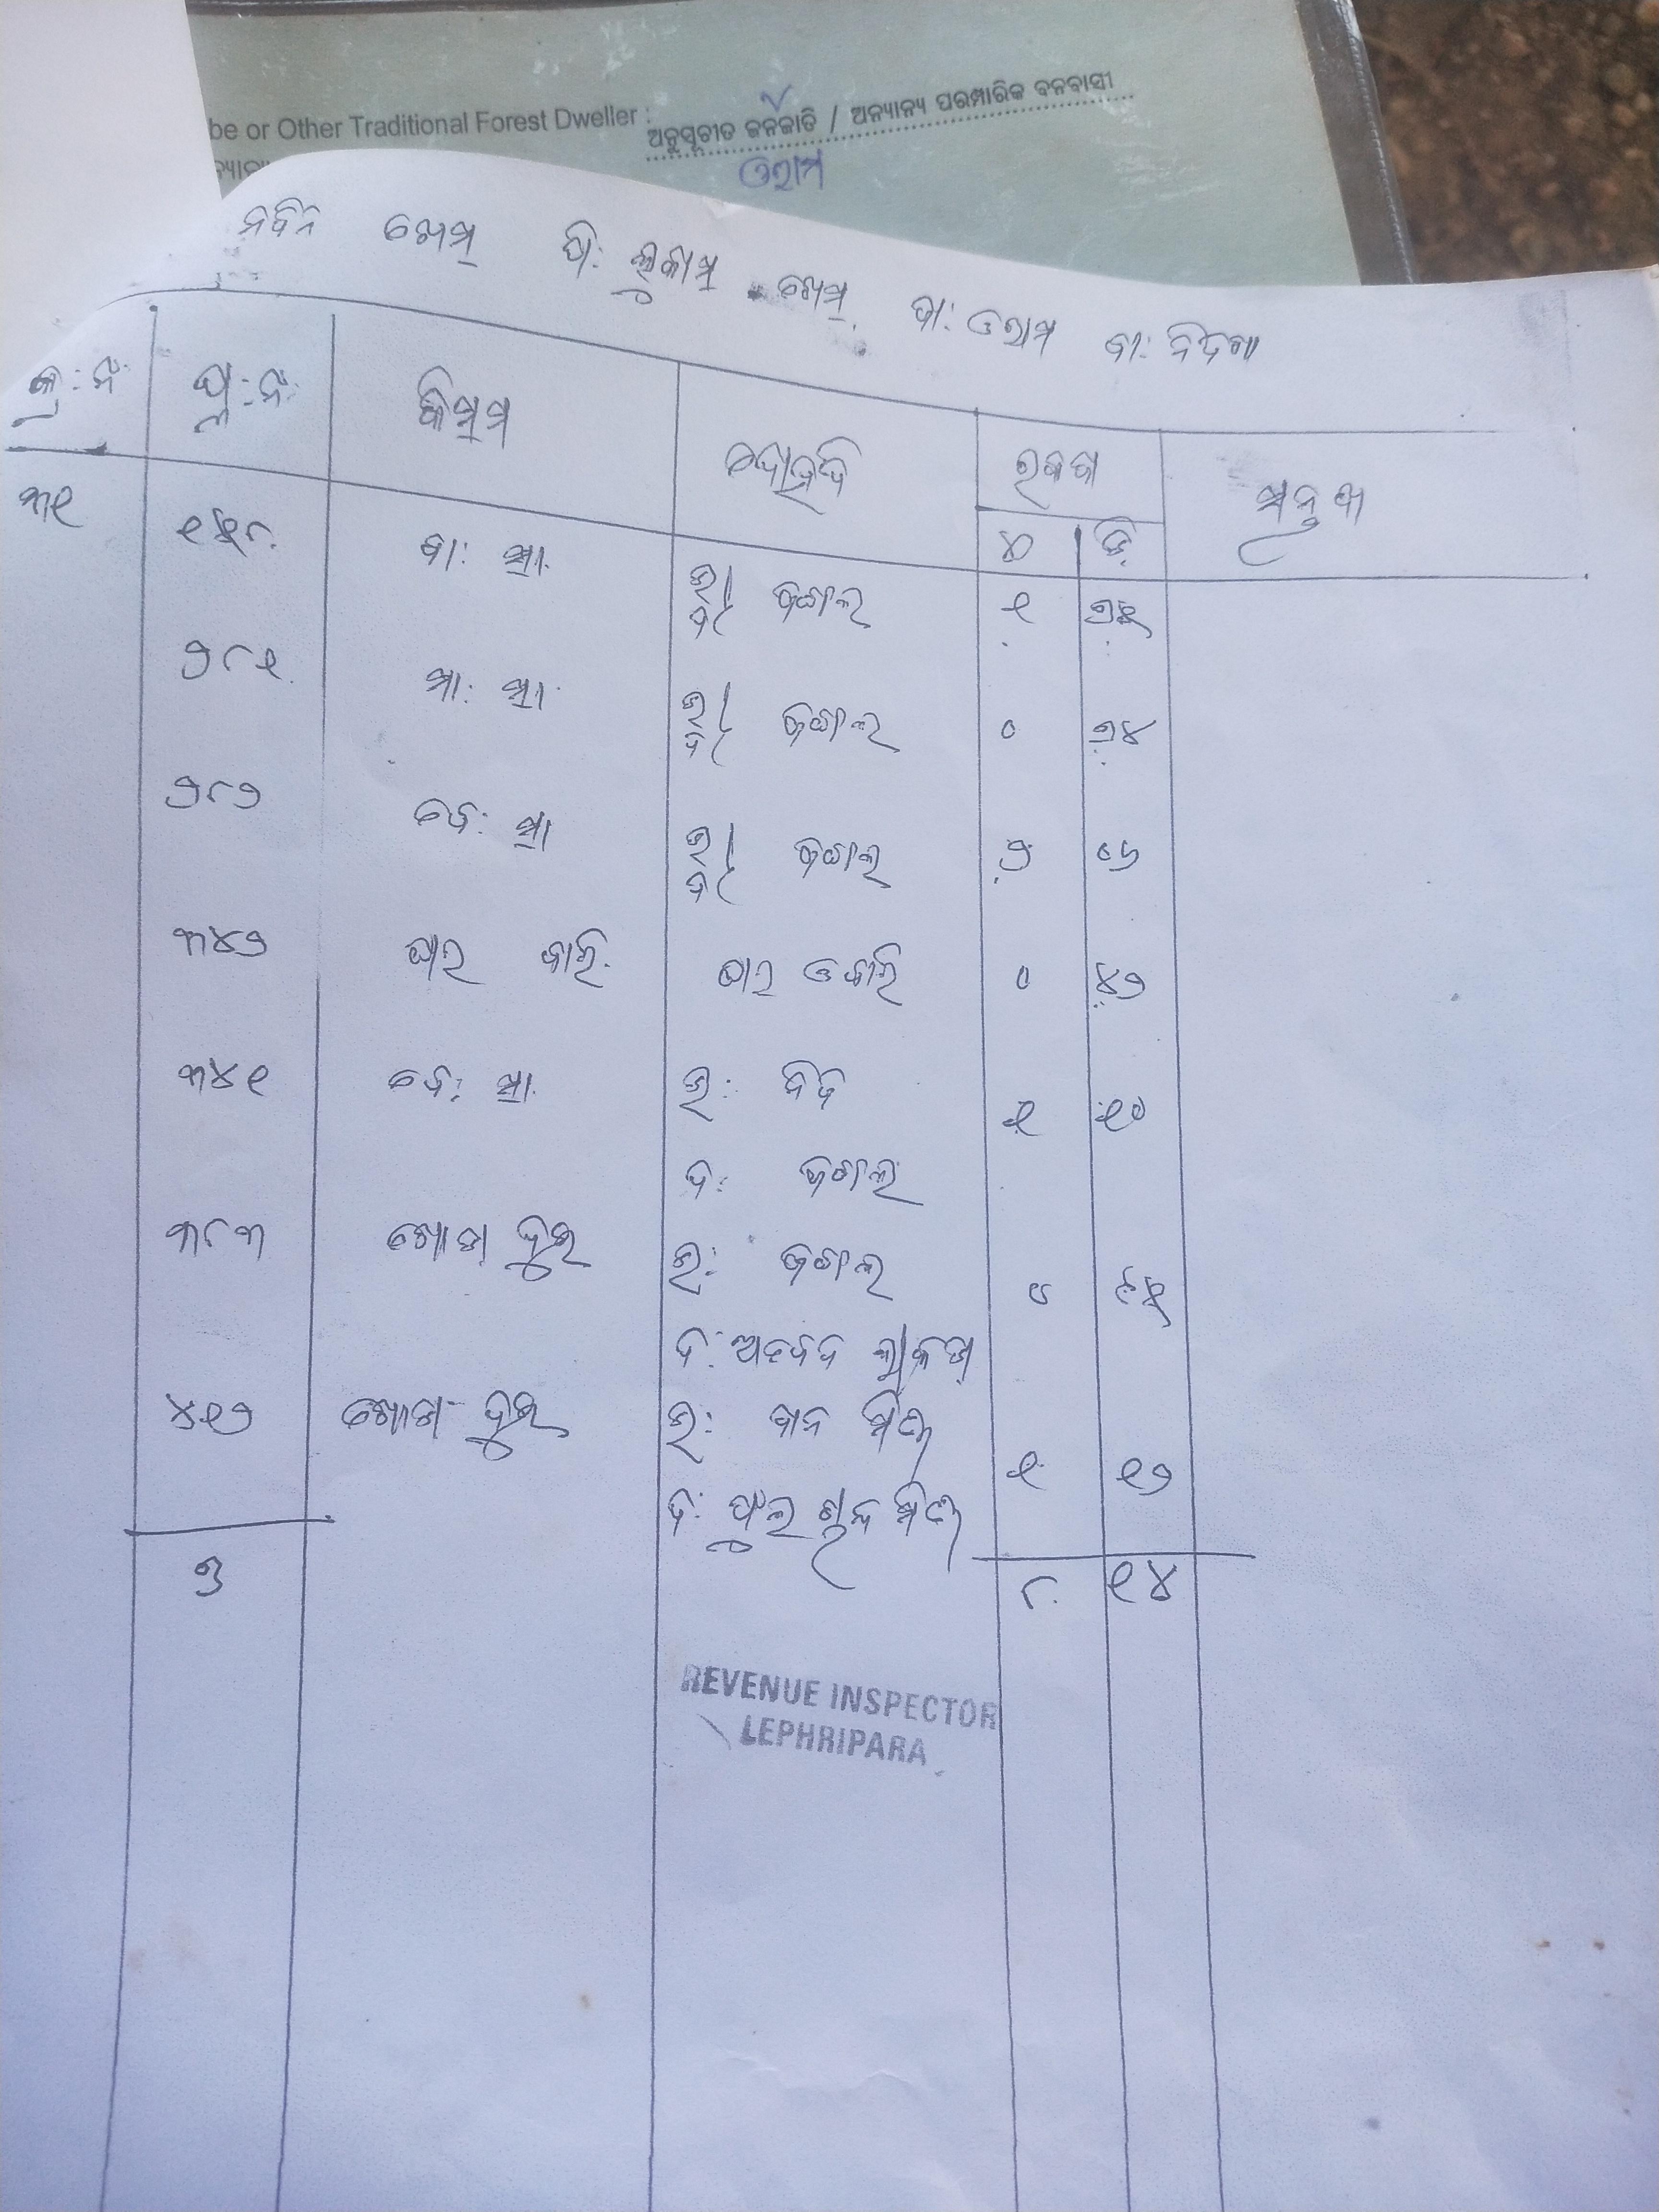 be or Other Traditional Forest Dweller :
ଅନୁସୂଚୀତ ଜନଜାତି / ଅନ୍ୟାନ୍ୟ ପରମ୍ପାରିକ ବନବାସୀ
ଓରାମ
ନବିନ ଖେସ୍ ପି: ଲୁକାସ୍ ଖେସ୍ ଜା: ଓରାମ ବା: ନିଦଗା
କ୍ର: ନଂ ପ୍ଲ: ନଂ କିସମ ଚୌହଦି ରକବା ମନ୍ତବ୍ୟ
ଏ ଡି
୩୧ ୧୫୮ ବା: ମା. ଉ/ ଦ/ ଜଙ୍ଗଲ ୧ ୨୫
୨୮୧ ମା: ମା. ଉ/ ଦ/ ଜଙ୍ଗଲ ୦ ୨୪
୨୮୨ ବେ: ମା ଉ/ ଦ/ ଜଙ୍ଗଲ ୨ ୦୬
୩୪୨ ଘର ବାରି ଘର ଓ ବାରି ୦ ୪୨
୩୪୧ ବେ: ମା. ଉ: ନିଜ ୧ ୧୦
ଦ: ଜଙ୍ଗଲ
୩୮୩ ଖୋଟା ଦୁଇ ଉ: ଜଙ୍ଗଲ ୦ ୮୫
ଦ: ଲାକଡା
୪୧୨ ଖୋଟା ଦୁଇ ଉ: ମିଞ୍ଜ ୧ ୧୨
ଦ: ଫୁଲ ମିଞ୍ଜ
୭ ୮ ୧୪
REVENUE INSPECTOR
LEPHRIPARA